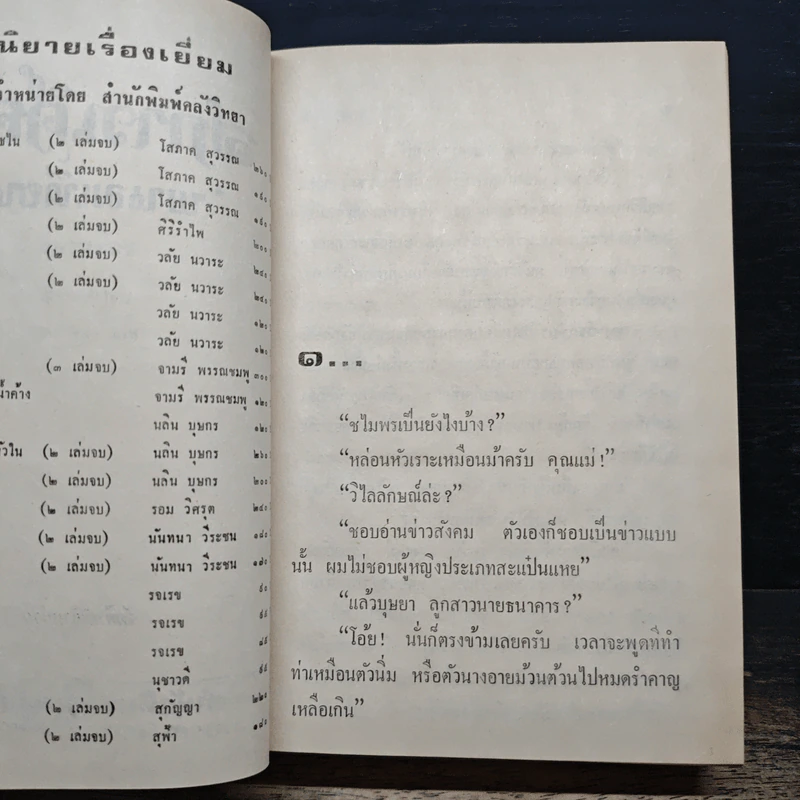 นิยายเรื่องเยี่ยม
จำหน่ายโดย สำนักพิมพ์คลังวิทยา
(๒ เล่มจบ) โสภาค สุวรรณ ๒๖๐
(๒ เล่มจบ) โสภาค สุวรรณ ๑๔๐
(๒ เล่มจบ) โสภาค สุวรรณ ๑๔๐
(๒ เล่มจบ) ศิริรำไพ ๒๐๐
(๒ เล่มจบ) วลัย นวาระ ๒๔๐
(๒ เล่มจบ) วลัย นวาระ ๒๔๐
วลัย นวาระ ๑๒๐
วลัย นวาระ ๑๒๐
(๓ เล่มจบ) จามรี พรรณชมพู ๓๐๐
น้ำค้าง จามรี พรรณชมพู ๑๒๐
นลิน บุษกร ๑๒๐
(๒ เล่มจบ) นลิน บุษกร ๒๖๐
(๒ เล่มจบ) นลิน บุษกร ๒๐๐
(๒ เล่มจบ) รอม วิศรุต ๒๔๐
(๒ เล่มจบ) นันทนา วีระชน ๑๘๐
(๒ เล่มจบ) นันทนา วีระชน ๑๗๐
รจเรข
รจเรข
รจเรข
นุชาวดี
(๒ เล่มจบ) สุกัญญา ๒๒๐
(๒ เล่มจบ) สุฟ้า ๑๘๐
๑...
“ชไมพรเป็นยังไงบ้าง?”
“หล่อนหัวเราะเหมือนม้าครับ คุณแม่!”
“วิไลลักษณ์ล่ะ?”
“ชอบอ่านข่าวสังคม ตัวเองก็ชอบเป็นข่าวแบบ
นั้น ผมไม่ชอบผู้หญิงประเภทสะแป๋นแหย”
“แล้วบุษยา ลูกสาวนายธนาคาร?”
“โอ้ย! นั่นก็ตรงข้ามเลยครับ เวลาจะพูดทีทำ
ท่าเหมือนตัวนิ่ม หรือตัวนางอายม้วนต้วนไปหมดรำคาญ
เหลือเกิน”